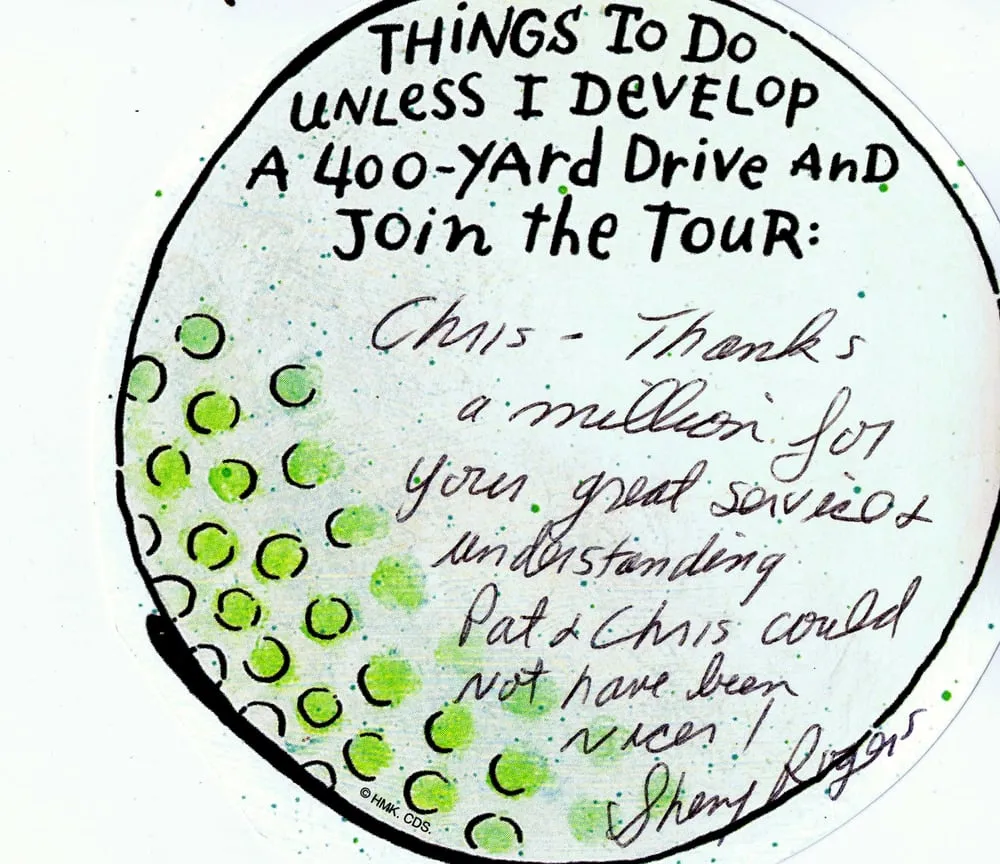 THiNGS To Do
UNLeSS I DeVELOP
A 400-YArd Drive AnD
Join the TouR:
Chris - Thanks
a million for
your great service &
understanding
Pat & Chris could
not have been
nicer!
Sherry Rogers
© HMK. CDS.